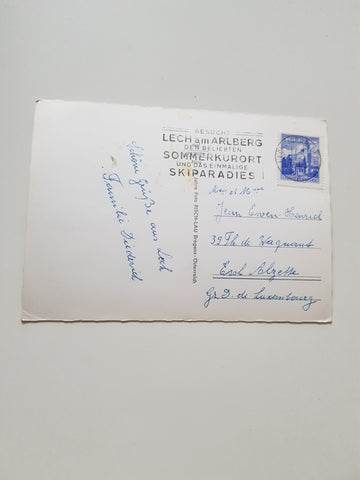 BESUCHT
LECH am ARLBERG
DEN BELIEBTEN
SOMMERKURORT
UND DAS EINMALIGE
SKIPARADIES !
Schöne Grüße aus Lech
Familie Diederich
Foto RISCH-LAU Bregenz - Österreich
Mr et Mme
Jean Ewen-Henrich
39 Th de Wagnant
Esch Alzette
Gr. D. de Luxembourg